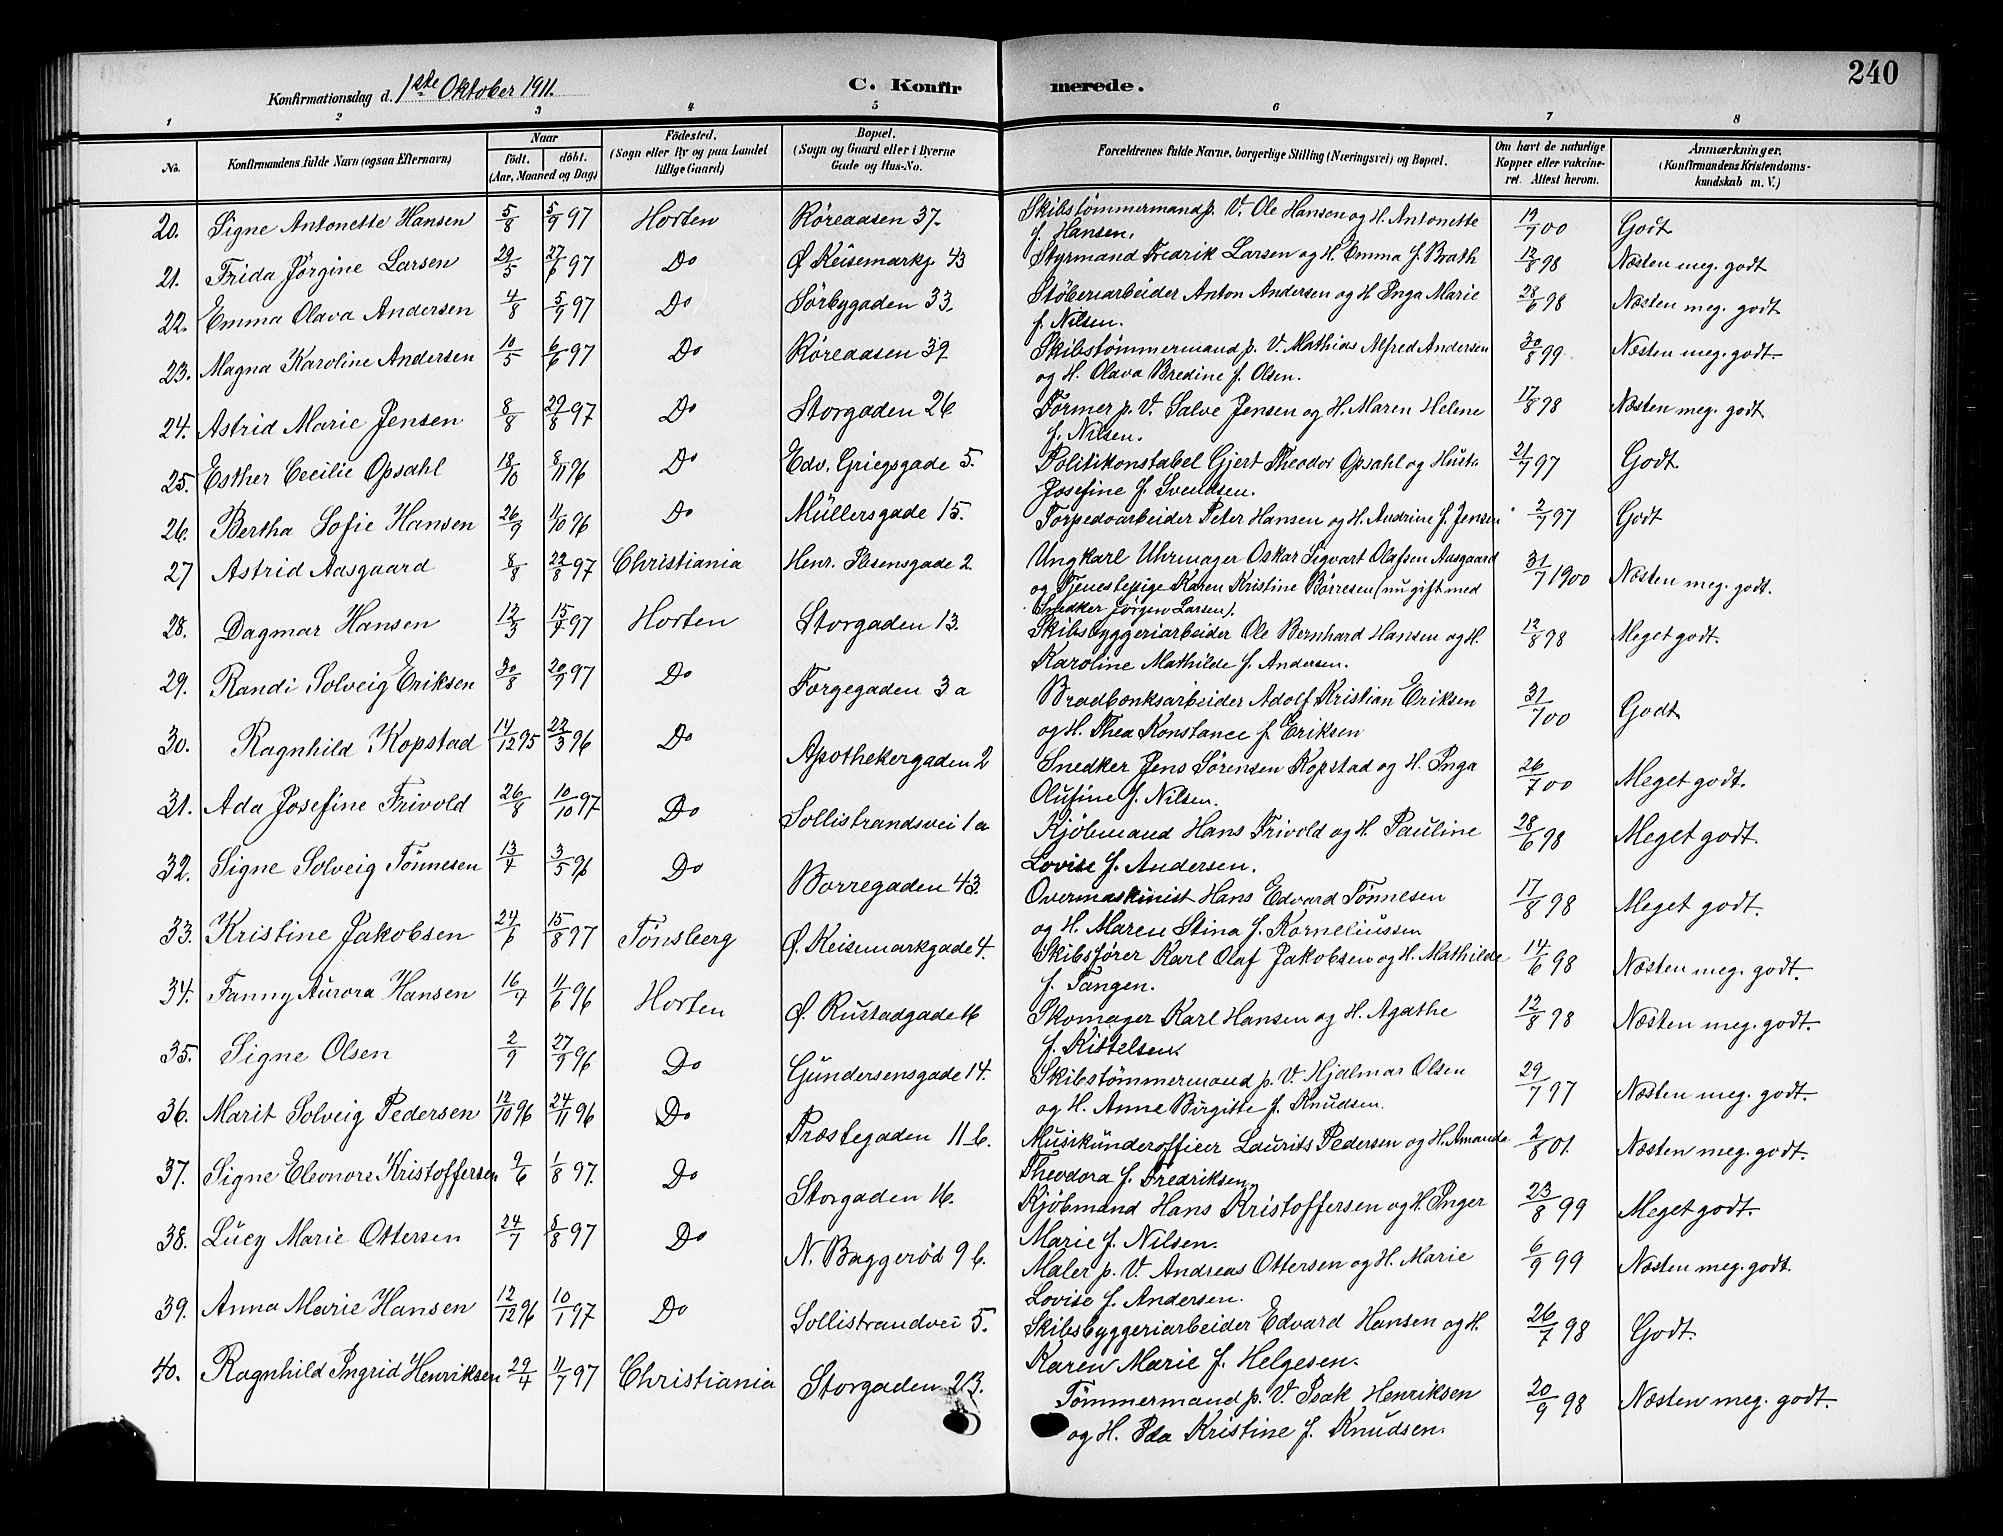 240
Konfirmationsdag d. 1ste Oktober 1911. C. Konfirmerede.
1 2 3 4 5 6 7 8
No. Konfirmandens fulde Navn (ogsaa Efternavn) Naar födt. döbt. (Aar, Maaned og Dag) Födested. (Sogn eller By og paa Landet tillige Gaard) Bopæl. (Sogn og Gaard eller i Byerne Gade og Hus-No. Forældrenes fulde Navne, borgerlige Stilling (Næringsvei) og Bopæl. Om havt de naturlige Kopper eller vakcineret. Attest herom. Anmærkninger. (Konfirmandens Kristendomskundskab m. V.)
20. Signe Antonette Hansen 5/8 5/9 97 Horten Röreaasen 37. Skibstömmermand p. V. Ole Hansen og H. Antonette
f. Hansen. 19/7 00 Godt
21. Frida Jörgine Larsen 29/5 27/6 97 Do Ø Keisemarkg 43 Styrmand Fredrik Larsen og H. Emma f. Brath 12/8 98 Næsten meg. godt
22. Emma Olava Andersen 4/8 5/9 97 Do Sörbygaden 33. Stöberiarbeider Anton Andersen og H Inga Marie
f. Nilsen. 28/6 98 Næsten meg. godt
23. Magna Karoline Andersen 10/5 6/6 97 Do Röreaasen 39 Skibstömmermand p. V. Mathias Alfred Andersen
og H. Olava Bredine f. Olsen. 30/8 99 Næsten meg. godt
24. Astrid Marie Jensen 8/8 29/8 97 Do Storgaden 26 Former p. V. Salve Jensen og H. Maren Helene
f. Nilsen. 17/8 98 Næsten meg. godt
25. Esther Cecilie Opsahl 18/10 8/11 96 Do Edv. Griegsgade 5. Politikonstabel Gjert Theodor Opsahl og Hustr.
Josefine f. Svendsen. 21/7 97 Godt
26. Bertha Sofie Hansen 26/9 11/10 96 Do Müllersgade 15. Torpedoarbeider Peter Hansen og H. Andrine f. Jensen 2/7 97 Godt
27 Astrid Aasgaard 8/8 22/8 97 Christiania Henr. Ibsensgade 2 Ungkarl Uhrmager Oskar Sigvart Olafsen Aasgaard
og Tjenestepige Karen Kristine Börresen (nu gift med
Snedker Jörgen Larsen). 31/7 1900 Næsten meg. godt.
28. Dagmar Hansen 12/3 15/7 97 Horten Storgaden 13. Skibsbyggeriarbeider Ole Bernhard Hansen og H.
Karoline Mathilde f. Andersen. 12/8 98 Meget godt.
29. Randi Solveig Eriksen 30/8 20/9 97 Do Forgegaden 3 a Bradbænksarbeider Adolf Kristian Eriksen
og H. Thea Konstance f. Eriksen 31/7 00 Godt
30. Ragnhild Kopstad 14/12 95 22/3 96 Do Apothekergaden 2 Snedker Jens Sörensen Kopstad og H. Inga
Olufine f. Nilsen. 26/7 00 Meget godt.
31. Ada Josefine Frivold 26/8 10/10 97 Do Sollistrandsvei 1a Kjöbmand Hans Frivold og H. Pauline
Lovise f. Andersen. 28/6 98 Meget godt.
32. Signe Solveig Tönnesen 13/4 3/5 96 Do Borregaden 43. Overmaskinist Hans Edvard Tönnesen
og H. Maren Stina f. Korneliussen 17/8 98 Meget godt.
33. Kristine Jakobsen 24/6 15/8 97 Tönsberg Ø. Keisemarkgade 4. Skibsförer Karl Olaf Jakobsen og H. Mathilde
f. Tangen. 14/6 98 Næsten meg. godt.
34. Fanny Aurora Hansen 16/4 11/6 96 Horten Ø. Rustadgade 16 Skomager Karl Hansen og H. Agathe
f. Kittelsen. 12/8 98 Næsten meg. godt.
35. Signe Olsen 2/9 27/9 96 Do Gundersensgade 14. Skibstömmermand p. V. Hjalmar Olsen
og H. Anne Birgitte f. Knudsen. 29/7 97 Næsten meg. godt.
36. Marit Solveig Pedersen 12/10 96 24/11 96 Do Præstegaden 11 b. Musikünderofficer Laurits Pedersen og H. Amanda
Theodora f. Fredriksen. 2/8 01. Næsten meg. godt.
37. Signe Eleonore Kristoffersen 9/6 1/8 97. Do Storgaden 16. Kjöbmand Hans Kristoffersen og H. Inger
Marie f. Nilsen. 23/8 99 Meget godt.
38. Lucy Marie Ottersen 24/7 8/8 97 Do N. Baggeröd 9 b. Maler p. V. Andreas Ottersen og H. Marie
Lovise f. Andersen. 6/9 99 Næsten meg. godt.
39. Anna Marie Hansen 12/12 96 10/1 97 Do Sollistrandvei 5. Skibsbyggeriarbeider Edvard Hansen og H.
Karen Marie f. Helgesen. 26/7 98 Godt
40. Ragnhild Ingrid Henriksen 29/4 11/7 97 Christiania Storgaden 23. Tömmermand p. V. Isak Henriksen
og H. Ida Kristine f. Knudsen. 20/9 98 Næsten meg. godt.